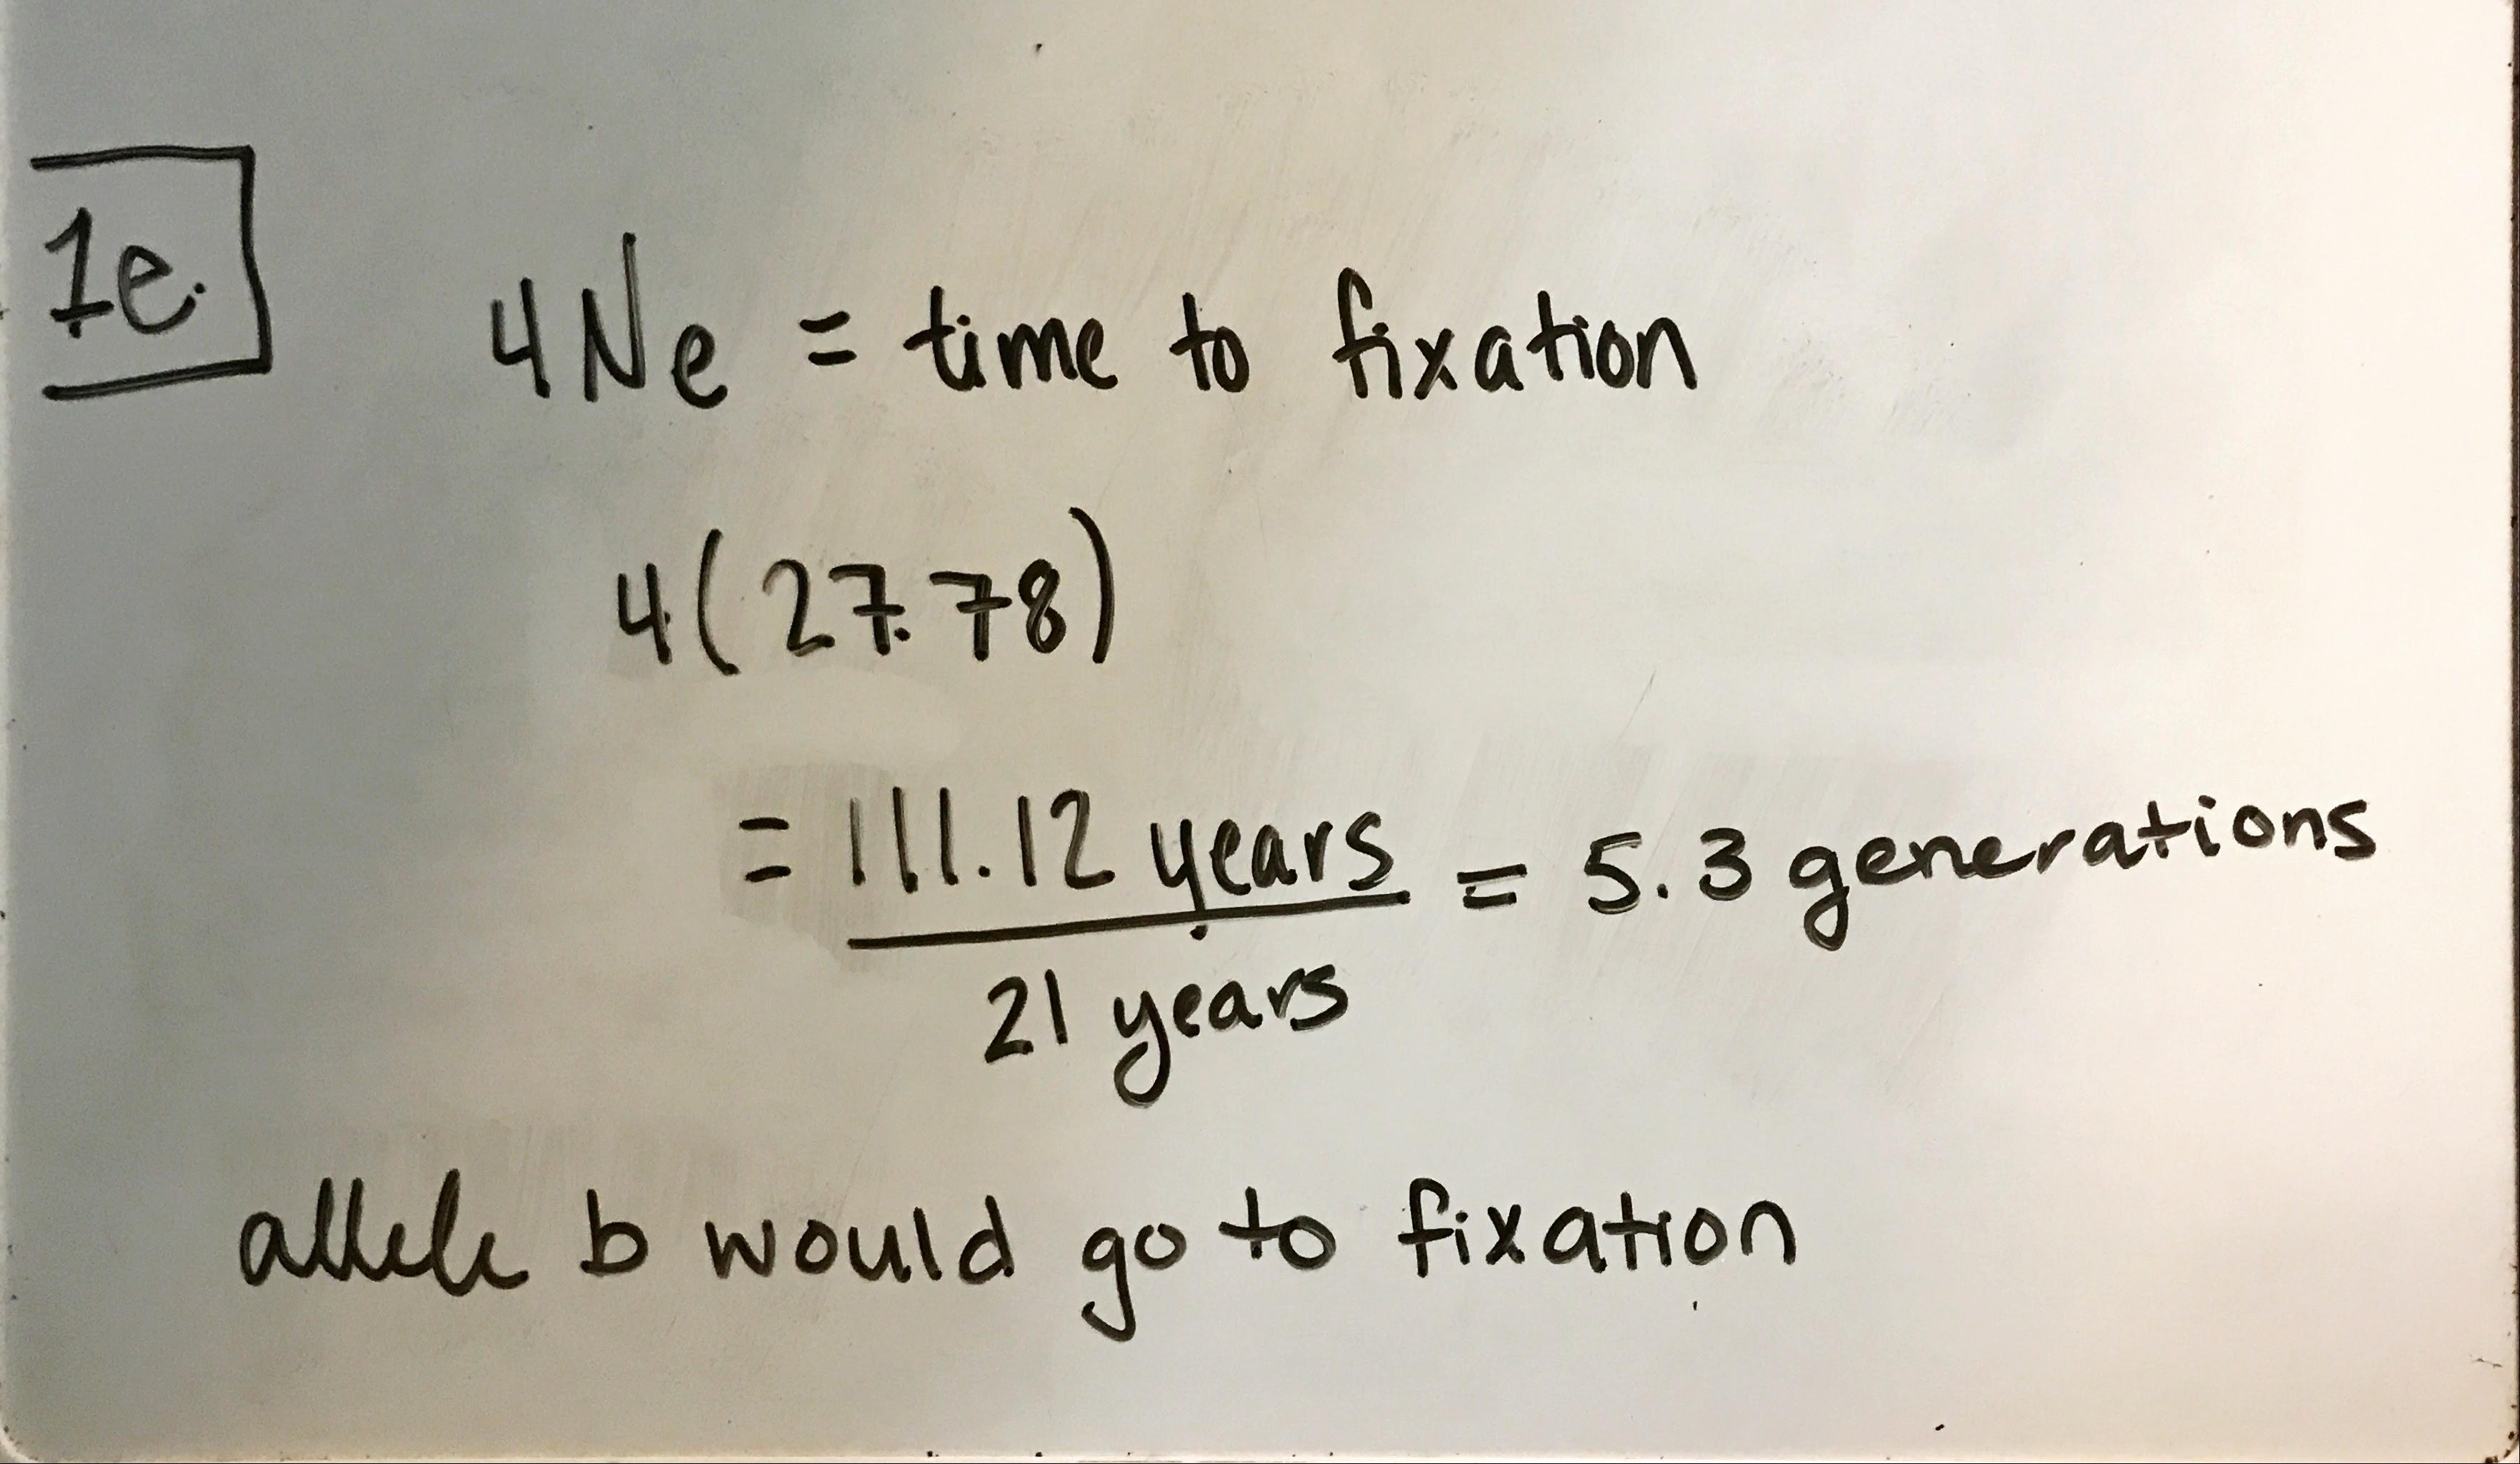 1e.
4Ne = time to fixation
4(27.78)
= 111.12 years = 5.3 generations
21 years
allele b would go to fixation